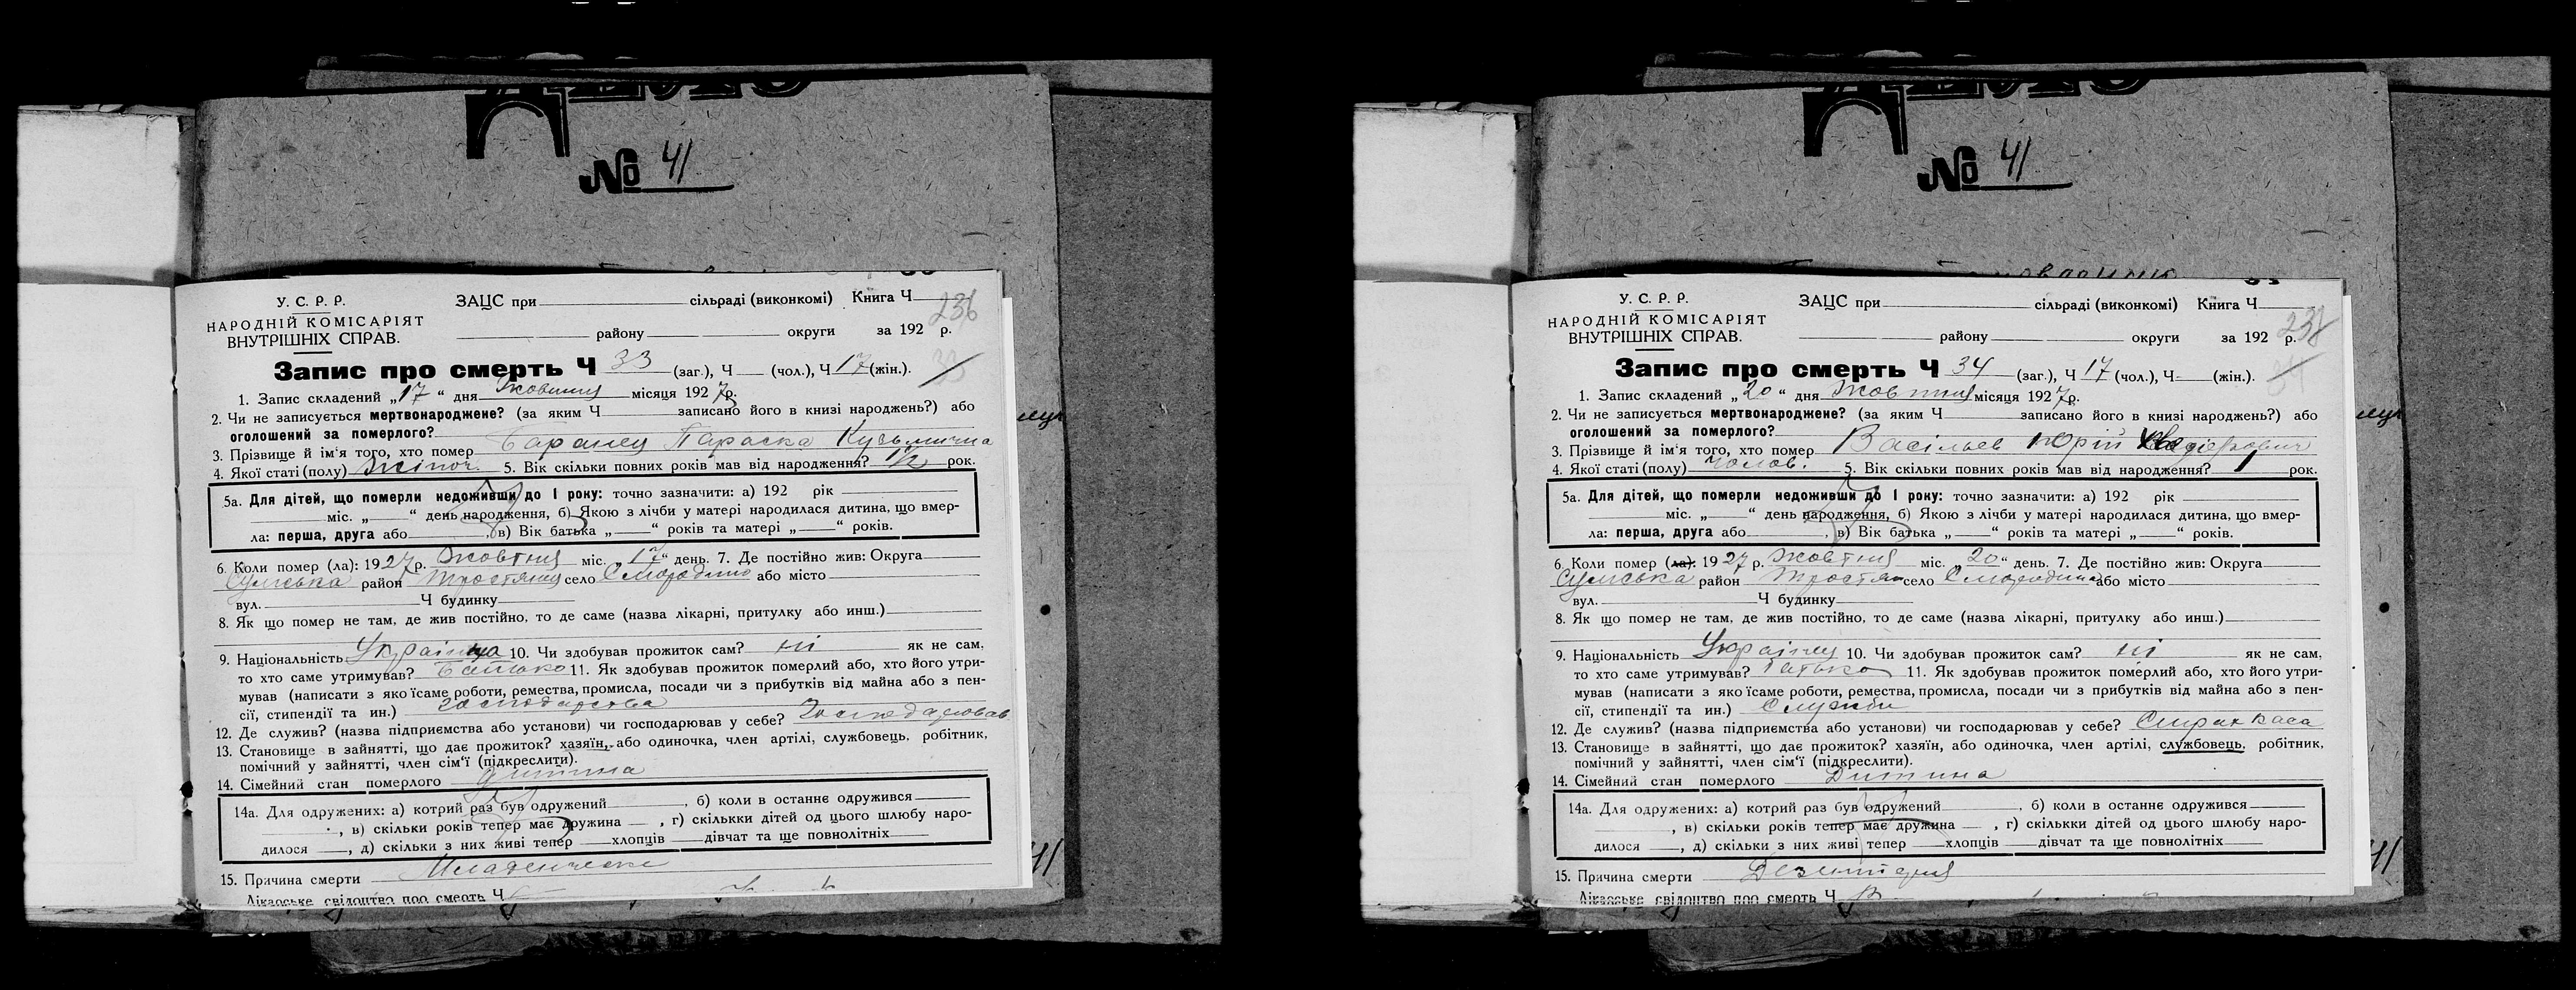 № 41
У. С. Р. Р.
НАРОДНІЙ КОМІСАРІЯТ
ВНУТРІШНІХ СПРАВ.
ЗАЦС при сільраді (виконкомі) Книга Ч
236
району округи за 192 р.
Запис про смерть Ч 33 (заг.), Ч (чол.), Ч 17 (жін.).
33
1. Запис складений „17“ дня Жовтня місяця 1927 р.
2. Чи не записується мертвонароджене? (за яким Ч записано його в книзі народжень?) або
оголошений за померлого?
3. Прізвище й ім'я того, хто помер Баранец Параска Кузьмична
4. Якої статі (полу) жіноч. 5. Вік скільки повних років мав від народження? 1½ рок.
5а. Для дітей, що померли недоживши до 1 року: точно зазначити: а) 192 рік
міс. „ “ день народження, б) Якою з лічби у матері народилася дитина, що вмер-
ла: перша, друга або , в) Вік батька „ “ років та матері „ “ років.
6. Коли помер (ла): 1927 р. Жовтня міс. „17“ день. 7. Де постійно жив: Округа
Сумська район Тростянец село Смородино або місто
вул. Ч будинку
8. Як що помер не там, де жив постійно, то де саме (назва лікарні, притулку або инш.)
9. Національність Українка 10. Чи здобував прожиток сам? ні як не сам,
то хто саме утримував? Батько 11. Як здобував прожиток померлий або, хто його утри-
мував (написати з якоїсаме роботи, ремества, промисла, посади чи з прибутків від майна або з пен-
сії, стипендії та ин.) господарства
12. Де служив? (назва підприємства або установи) чи господарював у себе? Господарював
13. Становище в зайнятті, що дає прожиток? хазяїн, або одиночка, член артілі, службовець, робітник,
помічний у зайнятті, член сім'ї (підкреслити).
14. Сімейний стан померлого дитина
14а. Для одружених: а) котрий раз був одружений , б) коли в останнє одружився
, в) скільки років тепер має дружина , г) скількки дітей од цього шлюбу наро-
дилося , д) скільки з них живі тепер хлопців дівчат та ще повнолітніх
15. Причина смерти Младенческе
Лікарське свідоцтво про смерть Ч
№ 41
У. С. Р. Р.
НАРОДНІЙ КОМІСАРІЯТ
ВНУТРІШНІХ СПРАВ.
ЗАЦС при сільраді (виконкомі) Книга Ч
району округи за 192 р.
Запис про смерть Ч 34 (заг.), Ч 17 (чол.), Ч (жін.).
1. Запис складений „20“ дня Жовтня місяця 1927 р.
2. Чи не записується мертвонароджене? (за яким Ч записано його в книзі народжень?) або
оголошений за померлого?
3. Прізвище й ім'я того, хто помер Васільев Юрій
4. Якої статі (полу) чолов. 5. Вік скільки повних років мав від народження? 1 рок.
5а. Для дітей, що померли недоживши до 1 року: точно зазначити: а) 192 рік
міс. „ “ день народження, б) Якою з лічби у матері народилася дитина, що вмер-
ла: перша, друга або , в) Вік батька „ “ років та матері „ “ років.
6. Коли помер (ла): 1927 р. Жовтня міс. „20“ день. 7. Де постійно жив: Округа
Сумська район Тростян село Смородино або місто
вул. Ч будинку
8. Як що помер не там, де жив постійно, то де саме (назва лікарні, притулку або инш.)
9. Національність Українец 10. Чи здобував прожиток сам? ні як не сам,
то хто саме утримував? Батько 11. Як здобував прожиток померлий або, хто його утри-
мував (написати з якоїсаме роботи, ремества, промисла, посади чи з прибутків від майна або з пен-
сії, стипендії та ин.) Служби
12. Де служив? (назва підприємства або установи) чи господарював у себе? Страх каса
13. Становище в зайнятті, що дає прожиток? хазяїн, або одиночка, член артілі, службовець, робітник,
помічний у зайнятті, член сім'ї (підкреслити).
14. Сімейний стан померлого Дитина
14а. Для одружених: а) котрий раз був одружений , б) коли в останнє одружився
, в) скільки років тепер має дружина , г) скількки дітей од цього шлюбу наро-
дилося , д) скільки з них живі тепер хлопців дівчат та ще повнолітніх
15. Причина смерти Дезинтерия
Лікарське свідоцтво про смерть Ч